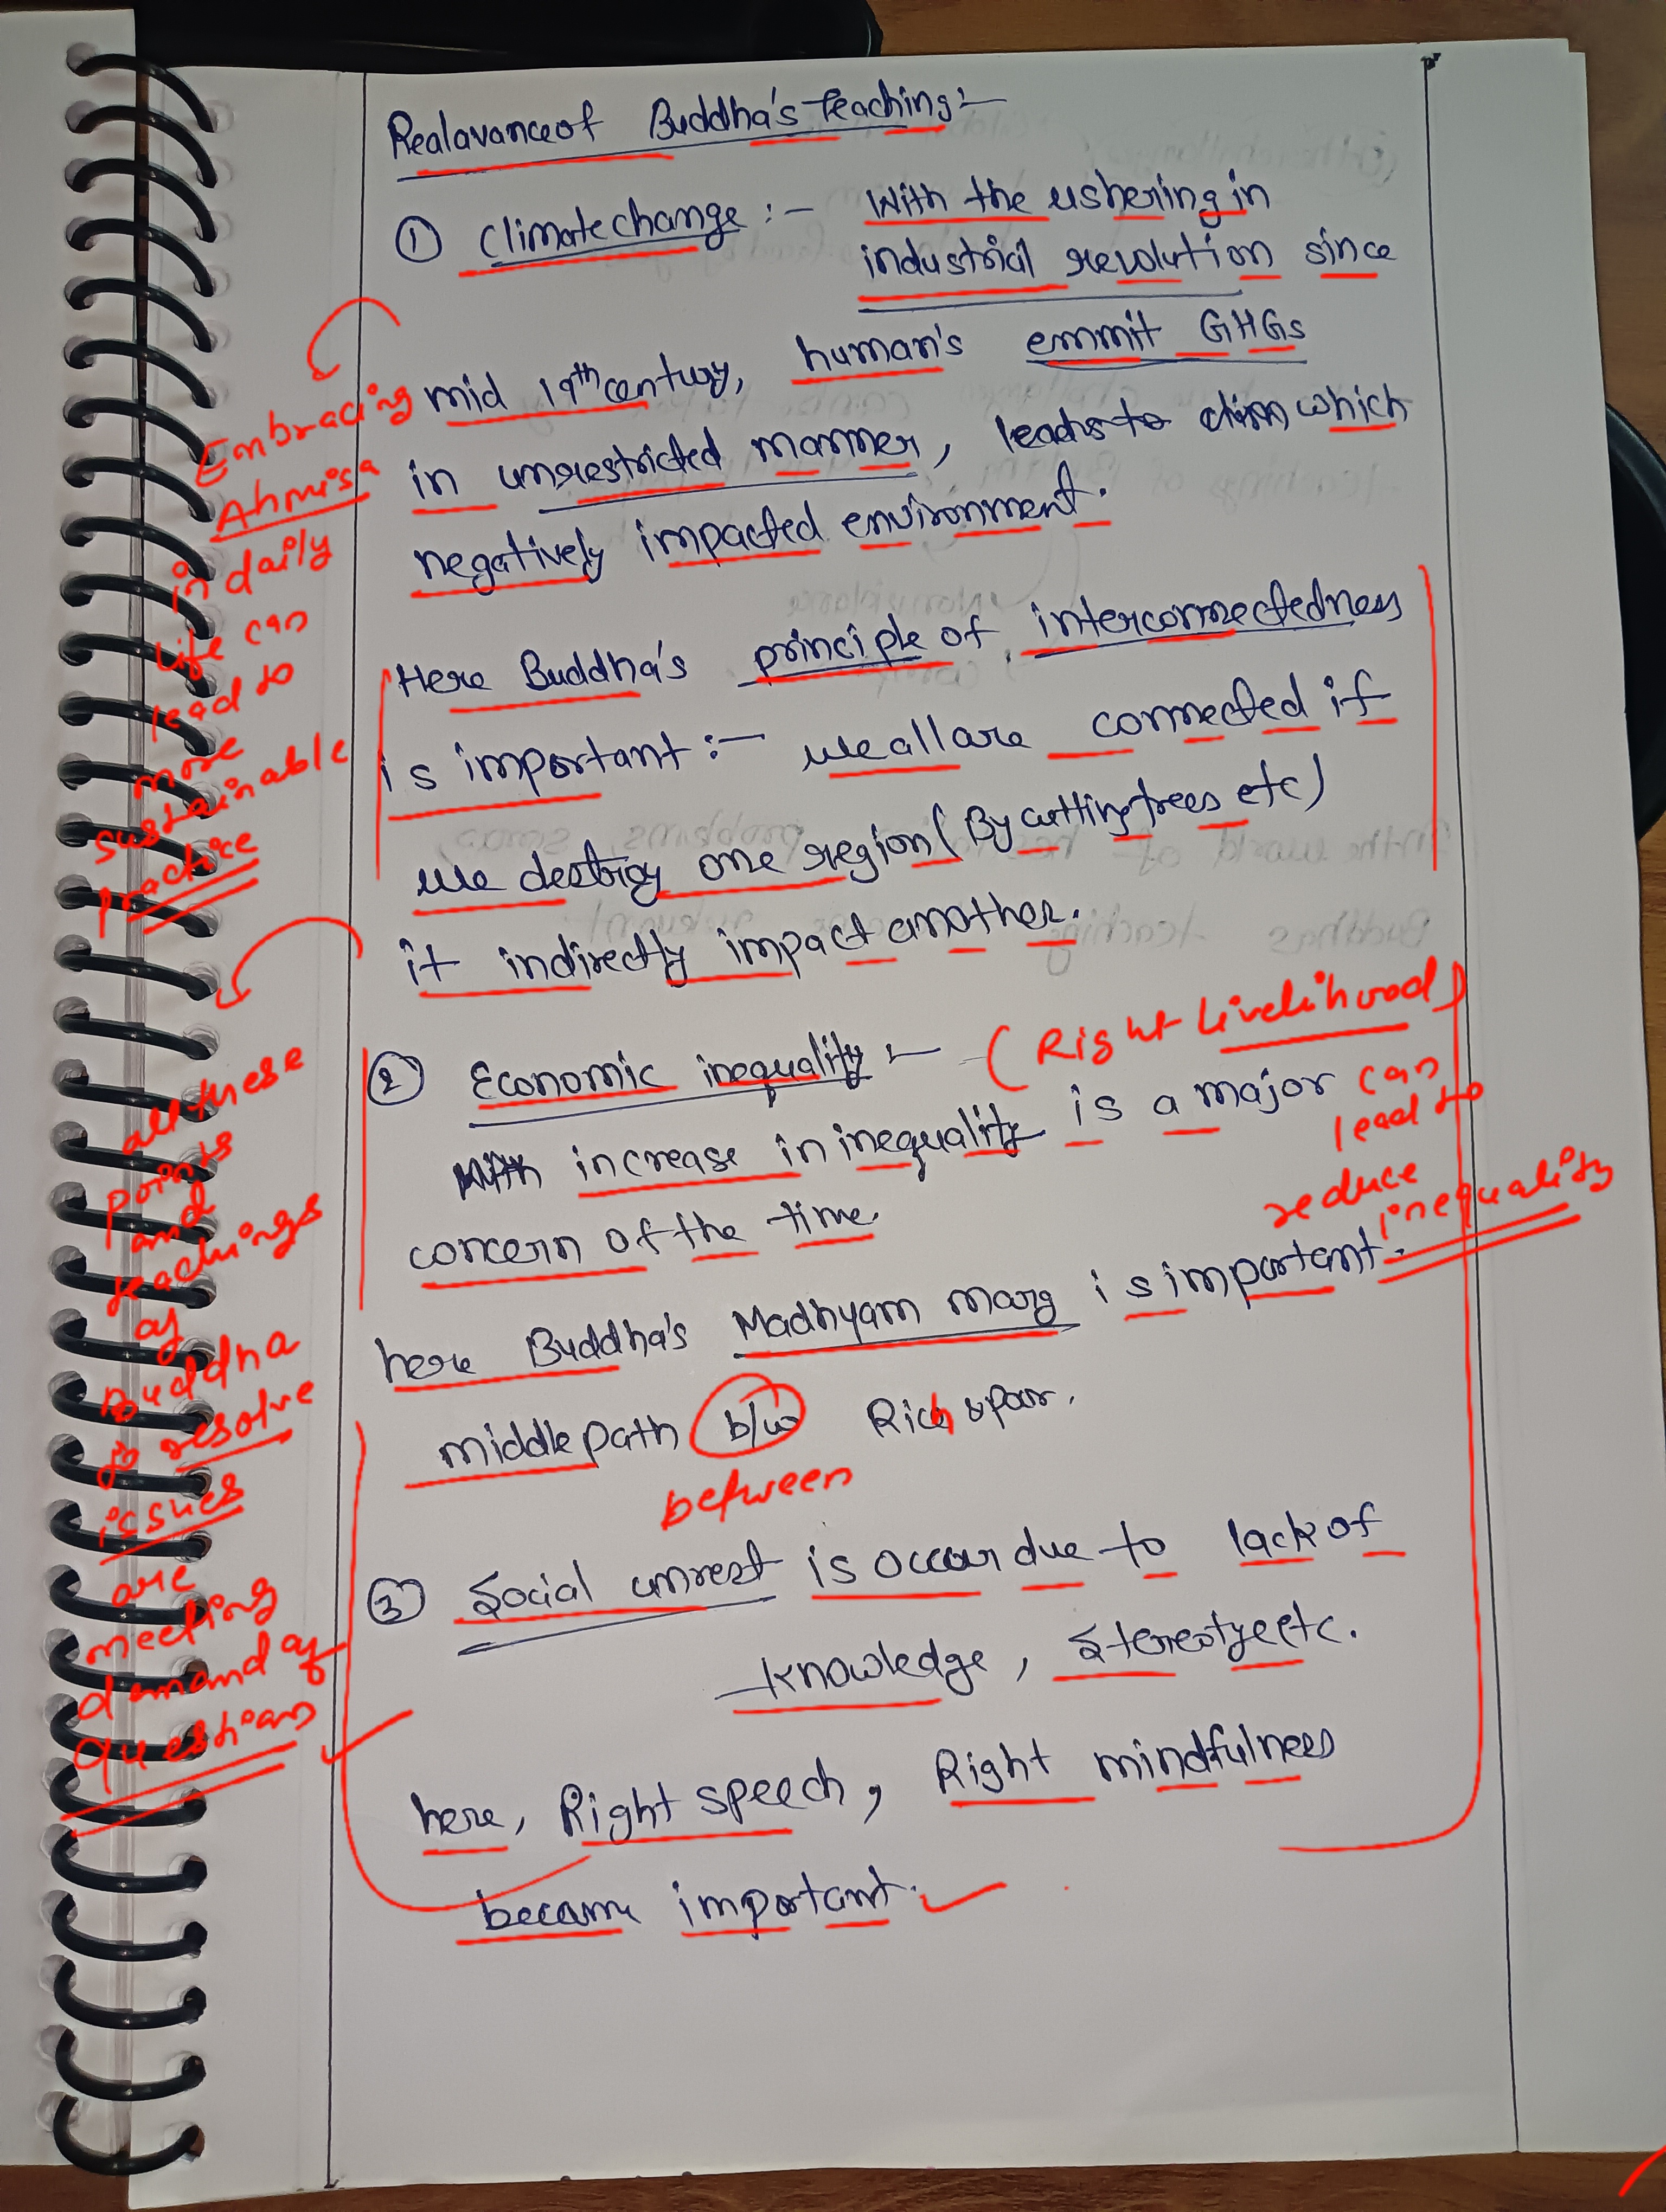 Realavance of Buddha's teaching :-
① Climate change :- With the ushering in
industrial revolution since
mid 19th century, human's emmit GHGs
in unrestricted manner, leads to which
negatively impacted environment.
Here Buddha's principle of interconnectedness
is important :- we all are connected if
we destroy one region (By cutting trees etc)
it indirectly impact another.
Embracing
Ahmisa
in daily
life can
lead to
more
sustainable
practice
② Economic inequality :- (Right Livelihood)
can
lead to
reduce
inequality
increase in inequality is a major
concern of the time.
here Buddha's Madhyam marg is important.
middle path b/w Rich & poor.
between
③ Social unrest is occur due to lack of
knowledge, stereotye etc.
here, Right speech, Right mindfulness
became important.
all these
points
and
teachings
of
Buddha
to resolve
issues
are
meeting
demand of
questions